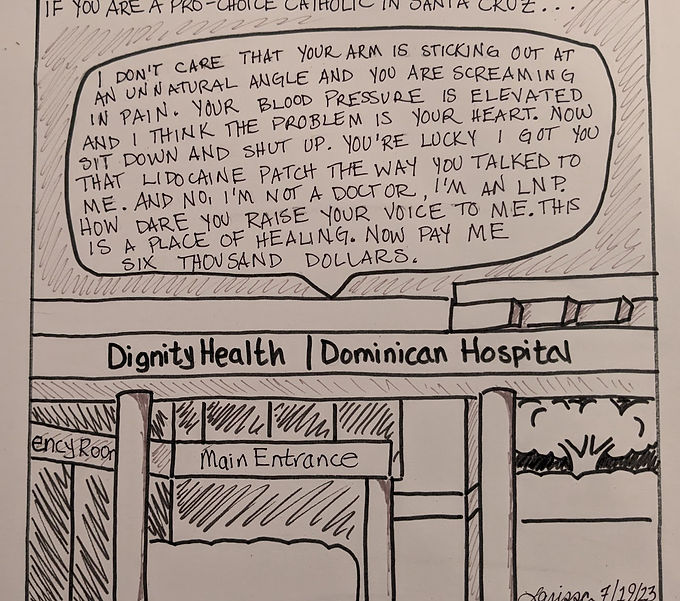 IF YOU ARE A PRO-CHOICE CATHOLIC IN SANTA CRUZ...
I DON'T CARE THAT YOUR ARM IS STICKING OUT AT
AN UNNATURAL ANGLE AND YOU ARE SCREAMING
IN PAIN. YOUR BLOOD PRESSURE IS ELEVATED
AND I THINK THE PROBLEM IS YOUR HEART. NOW
SIT DOWN AND SHUT UP. YOU'RE LUCKY I GOT YOU
THAT LIDOCAINE PATCH THE WAY YOU TALKED TO
ME. AND NO, I'M NOT A DOCTOR, I'M AN LNP.
HOW DARE YOU RAISE YOUR VOICE TO ME. THIS
IS A PLACE OF HEALING. NOW PAY ME
SIX THOUSAND DOLLARS.
DignityHealth | Dominican Hospital
ency Room
Main Entrance
Larissa 7/19/23